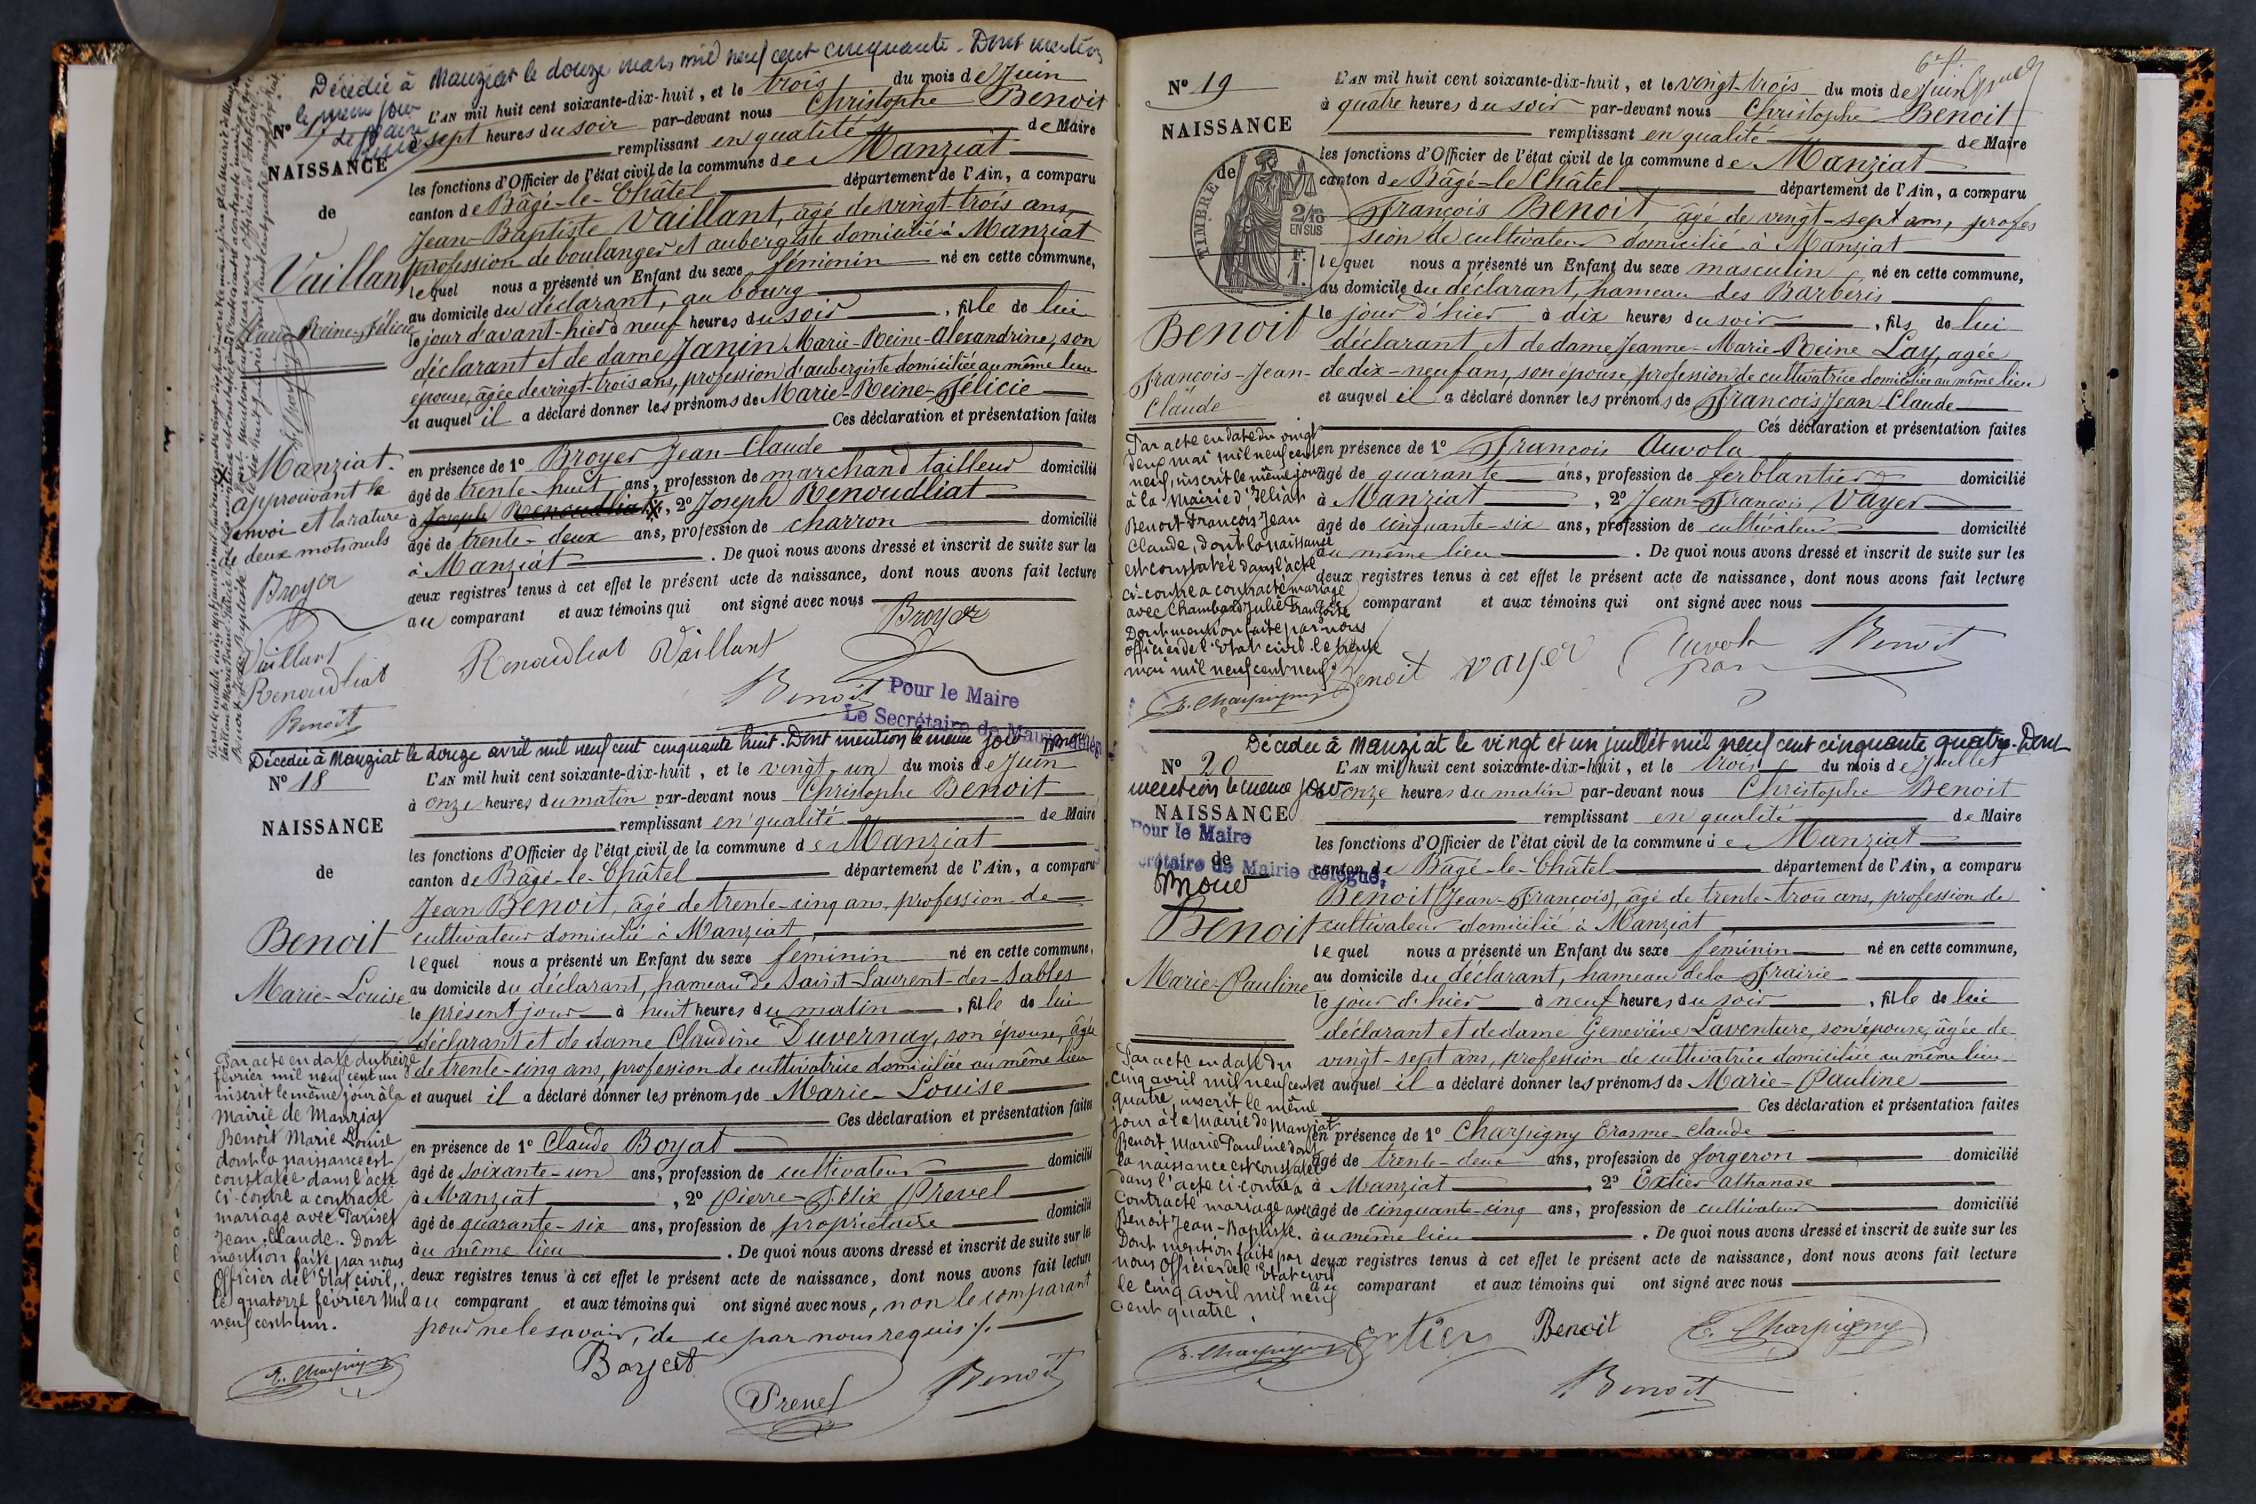 Décédée à Manziat le douze mars mil neuf cent cinquante. Dont mention
le même jour
Le Maire
L'AN mil huit cent soixante-dix-huit, et le trois du mois de Juin
à sept heures du soir par-devant nous Christophe Benoit
remplissant en qualité de Maire
NAISSANCE
les fonctions d'Officier de l'état civil de la commune de Manziat
canton de Bâgé-le-Châtel département de l'Ain, a comparu
de
Jean-Baptiste Vaillant, âgé de vingt trois ans,
profession de boulanger et aubergiste domicilié à Manziat
Vaillant
lequel nous a présenté un Enfant du sexe féminin né en cette commune,
au domicile du déclarant, au bourg
Marie-Reine-Félicie
le jour d'avant-hier à neuf heures du soir, fille de lui
déclarant et de dame Janin Marie-Reine-Alexandrine, son
épouse, âgée de vingt-trois ans, profession d'aubergiste domiciliée au même lieu
et auquel il a déclaré donner les prénoms de Marie-Reine-Félicie
Ces déclaration et présentation faites
en présence de 1º Broyer Jean-Claude
âgé de trente-huit ans, profession de marchand tailleur domicilié
à Joseph Renoudliat X, 2º Joseph Renoudliat
âgé de trente-deux ans, profession de charron domicilié
à Manziat. De quoi nous avons dressé et inscrit de suite sur les
deux registres tenus à cet effet le présent acte de naissance, dont nous avons fait lecture
au comparant et aux témoins qui ont signé avec nous
X Manziat.
approuvant le
renvoi et la rature
de deux mots nuls
Broyer
Vaillant
Renoudliat
Benoit
Broyer
Renoudliat Vaillant
Benoit
Pour le Maire
Le Secrétaire de Mairie délégué
Décédée à Manziat le douze avril mil neuf cent cinquante huit. Dont mention le même jour
Nº 18
L'AN mil huit cent soixante-dix-huit, et le vingt-un du mois de Juin
à onze heures du matin par-devant nous Christophe Benoit
NAISSANCE
remplissant en qualité de Maire
les fonctions d'Officier de l'état civil de la commune de Manziat
de
canton de Bâgé-le-Châtel département de l'Ain, a comparu
Jean Benoit, âgé de trente-cinq ans, profession de
Benoit
cultivateur domicilié à Manziat,
lequel nous a présenté un Enfant du sexe féminin né en cette commune,
Marie-Louise
au domicile du déclarant, hameau de Saint-Laurent-des-Sables
le présent jour à huit heures du matin, fille de lui
déclarant et de dame Claudine Duvernay, son épouse, âgée
de trente-cinq ans, profession de cultivatrice domiciliée au même lieu
et auquel il a déclaré donner les prénoms de Marie-Louise
Ces déclaration et présentation faites
en présence de 1º Claude Boyat
âgé de soixante-un ans, profession de cultivateur domicilié
à Manziat, 2º Pierre-Félix Prevel
âgé de quarante-six ans, profession de propriétaire domicilié
au même lieu. De quoi nous avons dressé et inscrit de suite sur les
deux registres tenus à cet effet le présent acte de naissance, dont nous avons fait lecture
au comparant et aux témoins qui ont signé avec nous, non le comparant
pour ne le savoir, de ce par nous requis./.
Par acte en date du treize
février mil neuf cent un
inscrit le même jour à la
Mairie de Manziat
Benoit Marie Louise
dont la naissance est
constatée dans l'acte
ci-contre a contracté
mariage avec Pariset
Jean Claude. Dont
mention faite par nous
Officier de l'Etat civil,
le quatorze février mil
neuf cent un.
E. Charpigny
Boyat
Prevel
Benoit
Nº 19
L'AN mil huit cent soixante-dix-huit, et le vingt-trois du mois de Juin
à quatre heures du soir par-devant nous Christophe Benoit
NAISSANCE
remplissant en qualité de Maire
les fonctions d'Officier de l'état civil de la commune de Manziat
de
canton de Bâgé-le-Châtel département de l'Ain, a comparu
TIMBRE
2/10
EN SUS
François Benoit, âgé de vingt-sept ans, profes
sion de cultivateur domicilié à Manziat
lequel nous a présenté un Enfant du sexe masculin, né en cette commune,
au domicile du déclarant, hameau des Barberis
Benoit
le jour d'hier à dix heures du soir, fils de lui
déclarant et de dame Jeanne-Marie-Reine Lay, agée
François-Jean-
Claude
de dix-neuf ans, son épouse profession de cultivatrice domiciliée au même lieu
et auquel il a déclaré donner les prénoms de François Jean Claude
Ces déclaration et présentation faites
en présence de 1º François Auvola
âgé de quarante ans, profession de ferblantier domicilié
à Manziat, 2º Jean-François Voyer
âgé de cinquante-six ans, profession de cultivateur domicilié
au même lieu. De quoi nous avons dressé et inscrit de suite sur les
deux registres tenus à cet effet le présent acte de naissance, dont nous avons fait lecture
comparant et aux témoins qui ont signé avec nous
Par acte en date du vingt
deux mai mil neuf cent
neuf, inscrit le même jour
à la Mairie d'
Benoit François Jean
Claude, dont la naissance
est constatée dans l'acte
ci-contre a contracté mariage
avec Chambard Julie Françoise
Dont mention faite par nous
officier de l'Etat civil le trente
mai mil neuf cent neuf.
E. Charpigny
Benoit Voyer Auvola Benoit
Décédée à Manziat le vingt et un juillet mil neuf cent cinquante quatre. Dont
mention le même jour
Nº 20
L'AN mil huit cent soixante-dix-huit, et le trois du mois de Juillet
à onze heures du matin par-devant nous Christophe Benoit
NAISSANCE
remplissant en qualité de Maire
Pour le Maire
Secrétaire de Mairie délégué,
les fonctions d'Officier de l'état civil de la commune de Manziat
de
canton de Bâgé-le-Châtel département de l'Ain, a comparu
Benoit (Jean-François), âgé de trente-trois ans, profession de
Benoit
cultivateur domicilié à Manziat
lequel nous a présenté un Enfant du sexe féminin né en cette commune,
Marie-Pauline
au domicile du déclarant, hameau de la Prairie
le jour d'hier à neuf heures du soir, fille de lui
déclarant et de dame Geneviève Laventure, son épouse, âgée de
vingt-sept ans, profession de cultivatrice domiciliée au même lieu
et auquel il a déclaré donner les prénoms de Marie-Pauline
Ces déclaration et présentation faites
en présence de 1º Charpigny Erasme-Claude
âgé de trente-deux ans, profession de forgeron domicilié
à Manziat, 2º Extier Athanase
âgé de cinquante-cinq ans, profession de cultivateur domicilié
au même lieu. De quoi nous avons dressé et inscrit de suite sur les
deux registres tenus à cet effet le présent acte de naissance, dont nous avons fait lecture
au comparant et aux témoins qui ont signé avec nous
Par acte en date du
cinq avril mil neuf cent
quatre, inscrit le même
jour à la Mairie de Manziat
Benoit Marie Pauline dont
la naissance est constatée
dans l'acte ci contre a
contracté mariage avec
Benoit Jean-Baptiste.
Dont mention faite par
nous Officier de l'Etat civil
le cinq avril mil neuf
cent quatre.
E. Charpigny
Extier Benoit E. Charpigny
Benoit